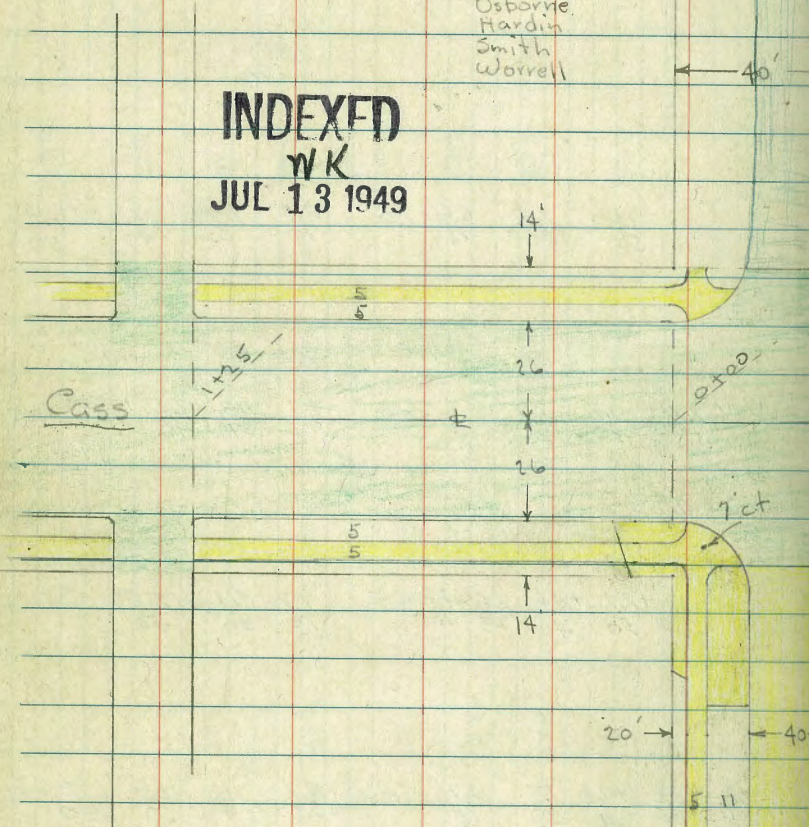 Osborne
Hardin
Smith
Worrell
40'
INDEXED
WK
JUL 13 1949
14'
5
5
1+25
26
0+00
Cass
℄
26
5
5
14'
20'
40
5 11